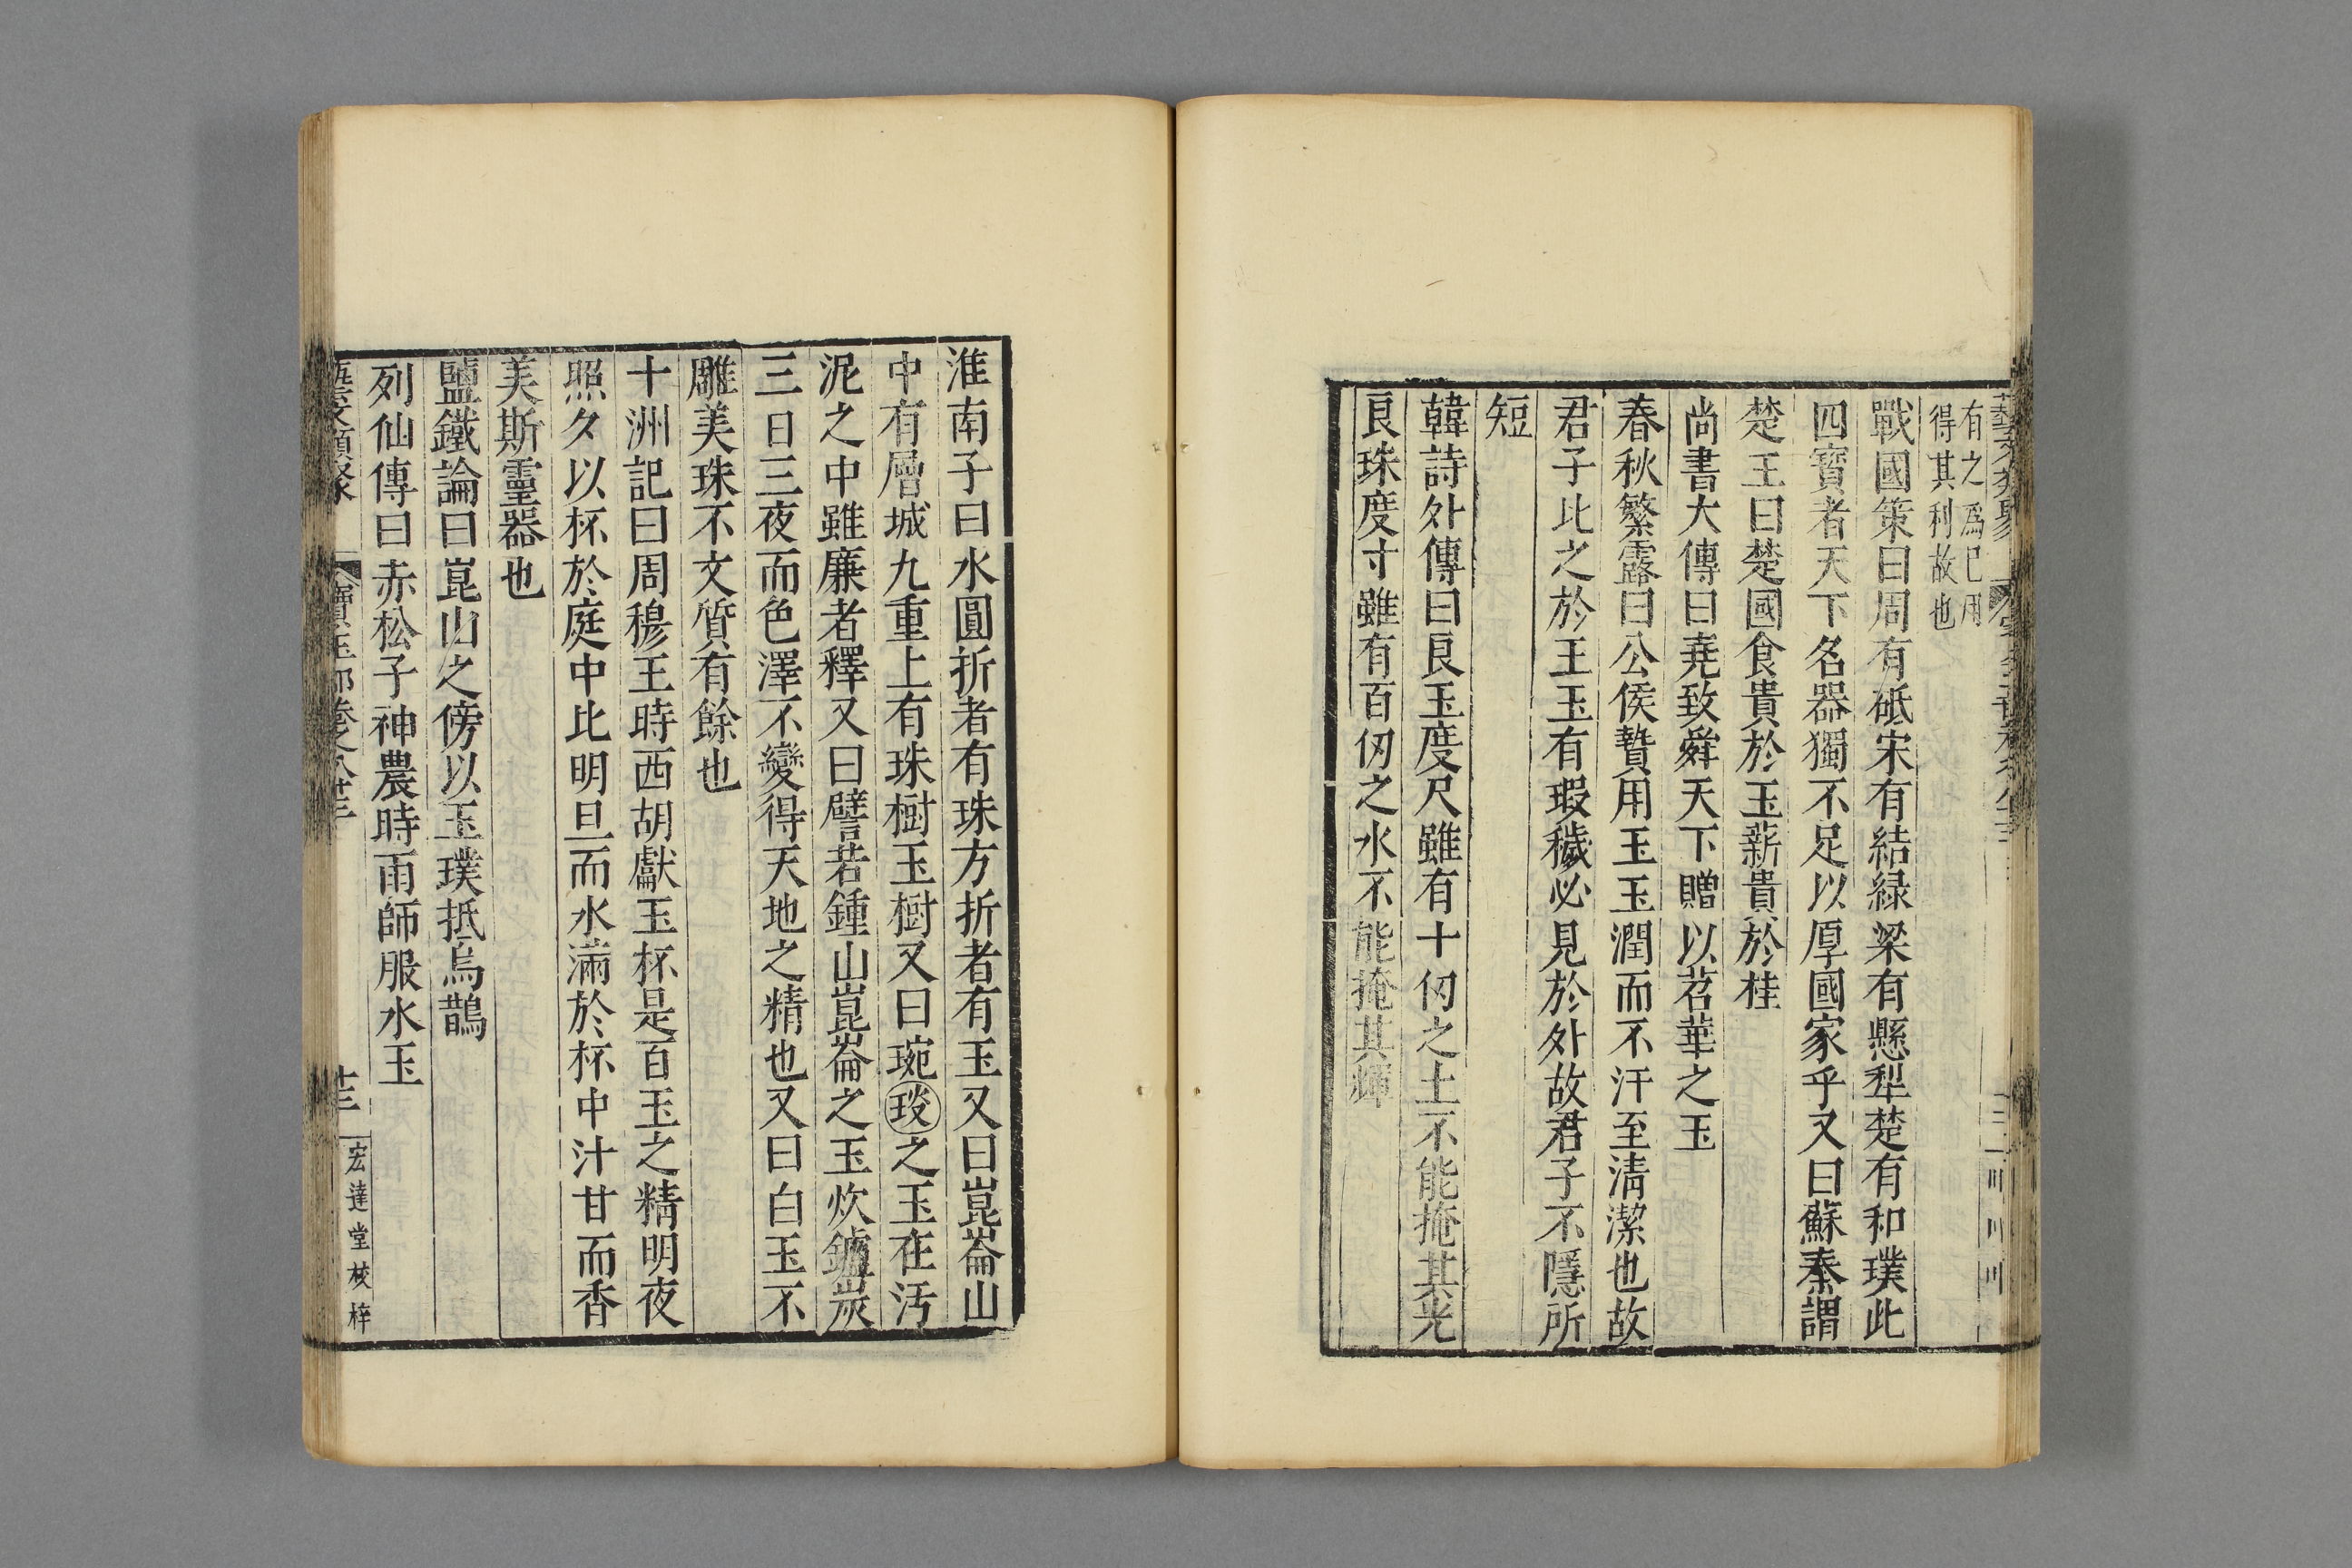 有之爲已用
得其利故也
戰國策曰周有砥宋有結緑梁有懸犁楚有和璞此
四寳者天下名器獨不足以厚國家乎又曰蘇秦謂
楚王曰楚國食貴於玉薪貴於桂
尚書大傳曰堯致舜天下贈以苕華之玉
春秋繁露曰公侯贄用玉玉潤而不汙至清潔也故
君子比之於玉玉有瑕穢必見於外故君子不隱所
短
韓詩外傳曰良玉度尺雖有十仞之土不能掩其光
良珠度寸雖有百仞之水不能掩其輝
淮南子曰水圓折者有珠方折者有玉又曰崑崙山
中有層城九重上有珠樹玉樹又曰琬琰之玉在汚
泥之中雖廉者釋又曰譬若鍾山崑崙之玉炊鑪炭
三日三夜而色澤不變得天地之精也又曰白玉不
雕美珠不文質有餘也
十洲記曰周穆王時西胡獻玉杯是百玉之精明夜
照夕以杯於庭中比明旦而水滿於杯中汁甘而香
美斯靈器也
鹽鐵論曰崑山之傍以玉璞抵烏鵲
列仙傳曰赤松子神農時雨師服水玉
藝文類聚 寳玉部卷之八十三 十三 宏達堂校梓